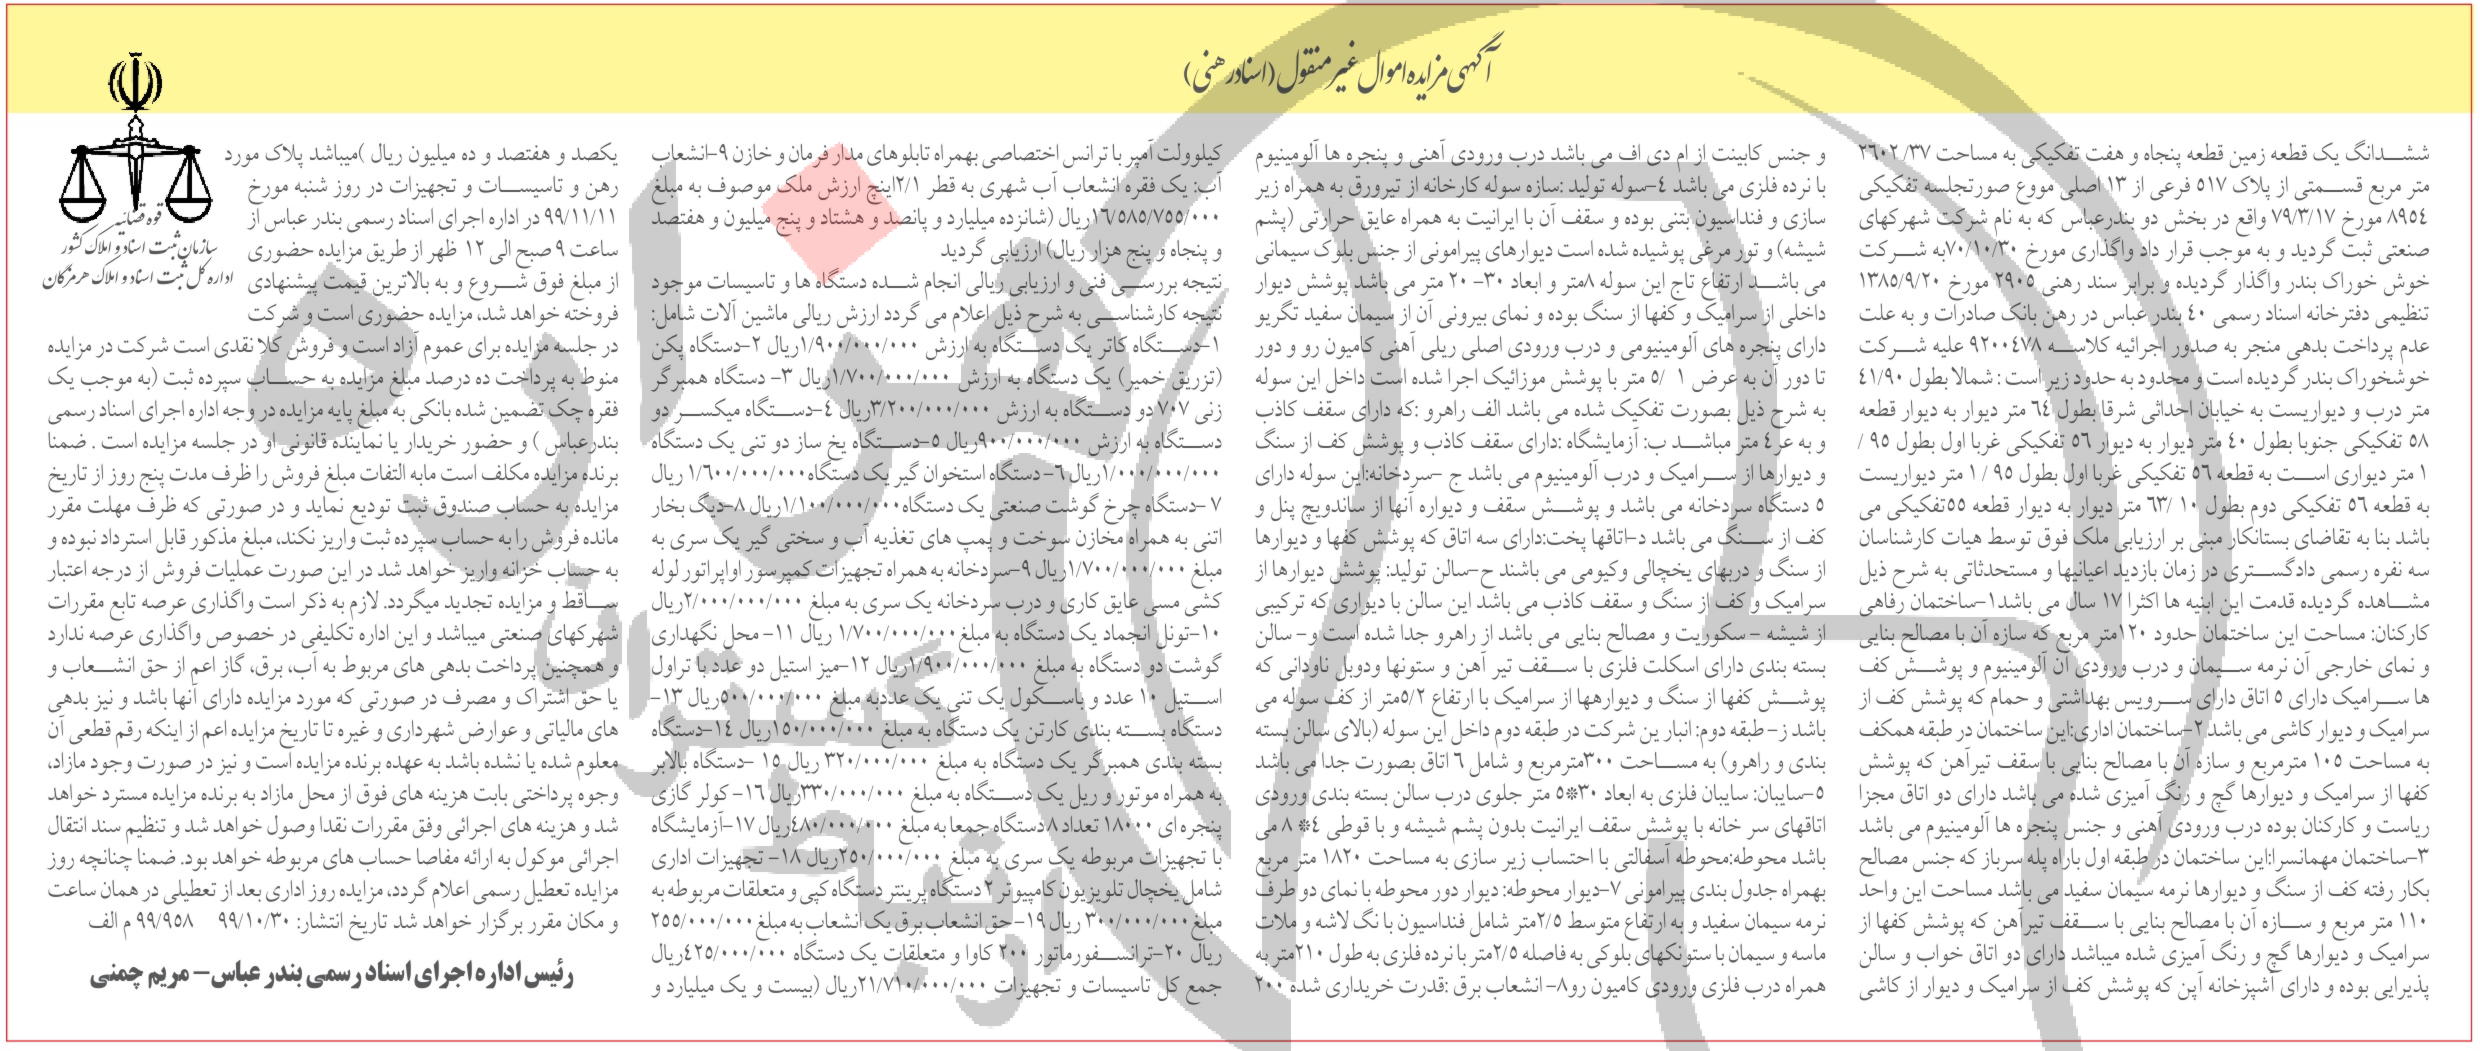 آگهی مزایده اموال غیر منقول (اسناد رهنی)
قوه قضائیه
سازمان ثبت اسناد و املاک کشور
اداره کل ثبت اسناد و املاک هرمزگان
ششـــدانگ یک قطعه زمین قطعه پنجاه و هفت تفکیکی به مساحت ۲٦۰۲/۳۷
متر مربع قســـمتی از پلاک ۵۱۷ فرعی از ۱۳ اصلی مووع صورتجلسه تفکیکی
۸۹۵٤ مورخ ۷۹/۳/۱۷ واقع در بخش دو بندرعباس که به نام شرکت شهرکهای
صنعتی ثبت گردید و به موجب قرار داد واگذاری مورخ ۷۰/۱۰/۳۰به شـــرکت
خوش خوراک بندر واگذار گردیده و برابر سند رهنی ۲۹۰۵ مورخ ۱۳۸۵/۹/۲۰
تنظیمی دفترخانه اسناد رسمی ٤۰ بندر عباس در رهن بانک صادرات و به علت
عدم پرداخت بدهی منجر به صدور اجرائیه کلاســـه ۹۲۰۰٤۷۸ علیه شـــرکت
خوشخوراک بندر گردیده است و محدود به حدود زیر است : شمالا بطول ٤۱/۹۰
متر درب و دیواریست به خیابان احداثی شرقا بطول ٦٤ متر دیوار به دیوار قطعه
۵۸ تفکیکی جنوبا بطول ٤۰ متر دیوار به دیوار ۵٦ تفکیکی غربا اول بطول ۹۵ /
۱ متر دیواری اســـت به قطعه ۵٦ تفکیکی غربا اول بطول ۹۵ /۱ متر دیواریست
به قطعه ۵٦ تفکیکی دوم بطول ۱۰ /٦۳ متر دیوار به دیوار قطعه ۵۵تفکیکی می
باشد بنا به تقاضای بستانکار مبنی بر ارزیابی ملک فوق توسط هیات کارشناسان
سه نفره رسمی دادگســـتری در زمان بازدید اعیانیها و مستحدثاتی به شرح ذیل
مشـــاهده گردیده قدمت این ابنیه ها اکثرا ۱۷ سال می باشد۱-ساختمان رفاهی
کارکنان: مساحت این ساختمان حدود ۱۲۰متر مربع که سازه آن با مصالح بنایی
و نمای خارجی آن نرمه ســـیمان و درب ورودی آن آلومینیوم و پوشـــش کف
ها ســـرامیک دارای ۵ اتاق دارای ســـرویس بهداشتی و حمام که پوشش کف از
سرامیک و دیوار کاشی می باشد ۲-ساختمان اداری:این ساختمان در طبقه همکف
به مساحت ۱۰۵ مترمربع و سازه آن با مصالح بنایی با سقف تیرآهن که پوشش
کفها از سرامیک و دیوارها گچ و رنگ آمیزی شده می باشد دارای دو اتاق مجزا
ریاست و کارکنان بوده درب ورودی آهنی و جنس پنجره ها آلومینیوم می باشد
۳-ساختمان مهمانسرا:این ساختمان در طبقه اول باراه پله سرباز که جنس مصالح
بکار رفته کف از سنگ و دیوارها نرمه سیمان سفید می باشد مساحت این واحد
۱۱۰ متر مربع و ســـازه آن با مصالح بنایی با ســـقف تیرآهن که پوشش کفها از
سرامیک و دیوارها گچ و رنگ آمیزی شده میباشد دارای دو اتاق خواب و سالن
پذیرایی بوده و دارای آشپزخانه اپن که پوشش کف از سرامیک و دیوار از کاشی
و جنس کابینت از ام دی اف می باشد درب ورودی آهنی و پنجره ها آلومینیوم
با نرده فلزی می باشد ٤-سوله تولید :سازه سوله کارخانه از تیرورق به همراه زیر
سازی و فنداسیون بتنی بوده و سقف آن با ایرانیت به همراه عایق حرارتی (پشم
شیشه) و تور مرغی پوشیده شده است دیوارهای پیرامونی از جنس بلوک سیمانی
می باشـــد ارتفاع تاج این سوله ۸متر و ابعاد ۳۰- ۲۰ متر می باشد پوشش دیوار
داخلی از سرامیک و کفها از سنگ بوده و نمای بیرونی آن از سیمان سفید تگریو
دارای پنجره های آلومینیومی و درب ورودی اصلی ریلی آهنی کامیون رو و دور
تا دور آن به عرض ۱ /۵ متر با پوشش موزائیک اجرا شده است داخل این سوله
به شرح ذیل بصورت تفکیک شده می باشد الف راهرو :که دارای سقف کاذب
و به عر٤ متر مباشـــد ب: آزمایشگاه :دارای سقف کاذب و پوشش کف از سنگ
و دیوارها از ســـرامیک و درب آلومینیوم می باشد ج -سردخانه:این سوله دارای
۵ دستگاه سردخانه می باشد و پوشـــش سقف و دیواره آنها از ساندویچ پنل و
کف از ســـنگ می باشد د-اتاقها پخت:دارای سه اتاق که پوشش کفها و دیوارها
از سنگ و دربهای یخچالی وکیومی می باشند ح-سالن تولید: پوشش دیوارها از
سرامیک و کف از سنگ و سقف کاذب می باشد این سالن با دیواری که ترکیبی
از شیشه - سکوریت و مصالح بنایی می باشد از راهرو جدا شده است و- سالن
بسته بندی دارای اسکلت فلزی با ســـقف تیر آهن و ستونها ودوبل ناودانی که
پوشـــش کفها از سنگ و دیوارهها از سرامیک با ارتفاع ۵/۲متر از کف سوله می
باشد ز- طبقه دوم: انبار ین شرکت در طبقه دوم داخل این سوله (بالای سالن بسته
بندی و راهرو) به مســـاحت ۳۰۰مترمربع و شامل ٦ اتاق بصورت جدا می باشد
۵-سایبان: سایبان فلزی به ابعاد ۳۰*۵ متر جلوی درب سالن بسته بندی ورودی
اتاقهای سر خانه با پوشش سقف ایرانیت بدون پشم شیشه و با قوطی ٤* ۸ می
باشد محوطه:محوطه آسفالتی با احتساب زیر سازی به مساحت ۱۸۲۰ متر مربع
بهمراه جدول بندی پیرامونی ۷-دیوار محوطه: دیوار دور محوطه با نمای دو طرف
نرمه سیمان سفید و به ارتفاع متوسط ۲/۵متر شامل فنداسیون با نگ لاشه و ملات
ماسه و سیمان با ستونکهای بلوکی به فاصله ۲/۵متر با نرده فلزی به طول ۲۱۰متر به
همراه درب فلزی ورودی کامیون رو۸- انشعاب برق :قدرت خریداری شده ۲۰۰
کیلوولت آمپر با ترانس اختصاصی بهمراه تابلوهای مدار فرمان و خازن ۹-انشعاب
آب: یک فقره انشعاب آب شهری به قطر ۲/۱اینچ ارزش ملک موصوف به مبلغ
۱٦/۵۸۵/۷۵۵/۰۰۰ریال (شانزده میلیارد و پانصد و هشتاد و پنج میلیون و هفتصد
و پنجاه و پنج هزار ریال) ارزیابی گردید
نتیجه بررســـی فنی و ارزیابی ریالی انجام شـــده دستگاه ها و تاسیسات موجود
نتیجه کارشناســـی به شرح ذیل اعلام می گردد ارزش ریالی ماشین آلات شامل:
۱-دســـتگاه کاتر یک دســـتگاه به ارزش ۱/۹۰۰/۰۰۰/۰۰۰ریال ۲-دستگاه پکن
(تزریق خمیر) یک دستگاه به ارزش ۱/۷۰۰/۰۰۰/۰۰۰ریال ۳- دستگاه همبرگر
زنی ۷۰۷ دو دســـتگاه به ارزش ۳/۲۰۰/۰۰۰/۰۰۰ریال ٤-دســـتگاه میکســـر دو
دســـتگاه به ارزش ۹۰۰/۰۰۰/۰۰۰ریال ۵-دســـتگاه یخ ساز دو تنی یک دستگاه
۱/۰۰۰/۰۰۰/۰۰۰ریال ٦- دستگاه استخوان گیر یک دستگاه۱/٦۰۰/۰۰۰/۰۰۰ ریال
۷ -دستگاه چرخ گوشت صنعتی یک دستگاه۱/۱۰۰/۰۰۰/۰۰۰ریال ۸-دیگ بخار
اتنی به همراه مخازن سوخت و پمپ های تغذیه آب و سختی گیر یک سری به
مبلغ ۱/۷۰۰/۰۰۰/۰۰۰ریال ۹-سردخانه به همراه تجهیزات کمپرسور اواپراتور لوله
کشی مسی عایق کاری و درب سردخانه یک سری به مبلغ ۲/۰۰۰/۰۰۰/۰۰۰ریال
۱۰-تونل انجماد یک دستگاه به مبلغ ۱/۷۰۰/۰۰۰/۰۰۰ ریال ۱۱- محل نگهداری
گوشت دو دستگاه به مبلغ ۱/۹۰۰/۰۰۰/۰۰۰ریال ۱۲-میز استیل دو عدد با تراول
اســـتیل ۱۰ عدد و باســـکول یک تنی یک عددبه مبلغ ۵۰۰/۰۰۰/۰۰۰ریال ۱۳-
دستگاه بســـته بندی کارتن یک دستگاه به مبلغ ۱۵۰/۰۰۰/۰۰۰ریال ۱٤-دستگاه
بسته بندی همبرگر یک دستگاه به مبلغ ۳۲۰/۰۰۰/۰۰۰ ریال ۱۵ -دستگاه بالابر
به همراه موتور و ریل یک دســـتگاه به مبلغ ۳۳۰/۰۰۰/۰۰۰ریال ۱٦- کولر گازی
پنجره ای ۱۸۰۰۰ تعداد ۸دستگاه جمعا به مبلغ ٤۸۰/۰۰۰/۰۰۰ریال ۱۷-آزمایشگاه
با تجهیزات مربوطه یک سری به مبلغ ۲۵۰/۰۰۰/۰۰۰ریال ۱۸- تجهیزات اداری
شامل یخچال تلویزیون کامپیوتر ۲ دستگاه پرینتر دستگاه کپی و متعلقات مربوطه به
مبلغ ۳۰۰/۰۰۰/۰۰۰ ریال ۱۹-حق انشعاب برق یک انشعاب به مبلغ ۲۵۵/۰۰۰/۰۰۰
ریال ۲۰-ترانســـفورماتور ۲۰۰ کاوا و متعلقات یک دستگاه ٤۲۵/۰۰۰/۰۰۰ریال
جمع کل تاسیسات و تجهیزات ۲۱/۷۱۰/۰۰۰/۰۰۰ریال (بیست و یک میلیارد و
یکصد و هفتصد و ده میلیون ریال )میباشد پلاک مورد
رهن و تاسیســـات و تجهیزات در روز شنبه مورخ
۹۹/۱۱/۱۱ در اداره اجرای اسناد رسمی بندر عباس از
ساعت ۹ صبح الی ۱۲ ظهر از طریق مزایده حضوری
از مبلغ فوق شـــروع و به بالاترین قیمت پیشنهادی
فروخته خواهد شد، مزایده حضوری است و شرکت
در جلسه مزایده برای عموم آزاد است و فروش کلا نقدی است شرکت در مزایده
منوط به پرداخت ده درصد مبلغ مزایده به حســـاب سپرده ثبت (به موجب یک
فقره چک تضمین شده بانکی به مبلغ پایه مزایده در وجه اداره اجرای اسناد رسمی
بندرعباس ) و حضور خریدار یا نماینده قانونی او در جلسه مزایده است . ضمنا
برنده مزایده مکلف است مابه التفات مبلغ فروش را ظرف مدت پنج روز از تاریخ
مزایده به حساب صندوق ثبت تودیع نماید و در صورتی که ظرف مهلت مقرر
مانده فروش را به حساب سپرده ثبت واریز نکند، مبلغ مذکور قابل استرداد نبوده و
به حساب خزانه واریز خواهد شد در این صورت عملیات فروش از درجه اعتبار
ســـاقط و مزایده تجدید میگردد. لازم به ذکر است واگذاری عرصه تابع مقررات
شهرکهای صنعتی میباشد و این اداره تکلیفی در خصوص واگذاری عرصه ندارد
و همچنین پرداخت بدهی های مربوط به آب، برق، گاز اعم از حق انشـــعاب و
یا حق اشتراک و مصرف در صورتی که مورد مزایده دارای آنها باشد و نیز بدهی
های مالیاتی و عوارض شهرداری و غیره تا تاریخ مزایده اعم از اینکه رقم قطعی آن
معلوم شده یا نشده باشد به عهده برنده مزایده است و نیز در صورت وجود مازاد،
وجوه پرداختی بابت هزینه های فوق از محل مازاد به برنده مزایده مسترد خواهد
شد و هزینه های اجرائی وفق مقررات نقدا وصول خواهد شد و تنظیم سند انتقال
اجرائی موکول به ارائه مفاصا حساب های مربوطه خواهد بود. ضمنا چنانچه روز
مزایده تعطیل رسمی اعلام گردد، مزایده روز اداری بعد از تعطیلی در همان ساعت
و مکان مقرر برگزار خواهد شد تاریخ انتشار: ۹۹/۱۰/۳۰ ۹۹/۹۵۸ م الف
رئیس اداره اجرای اسناد رسمی بندر عباس- مریم چمنی
هزاره
گستران
ارتباط